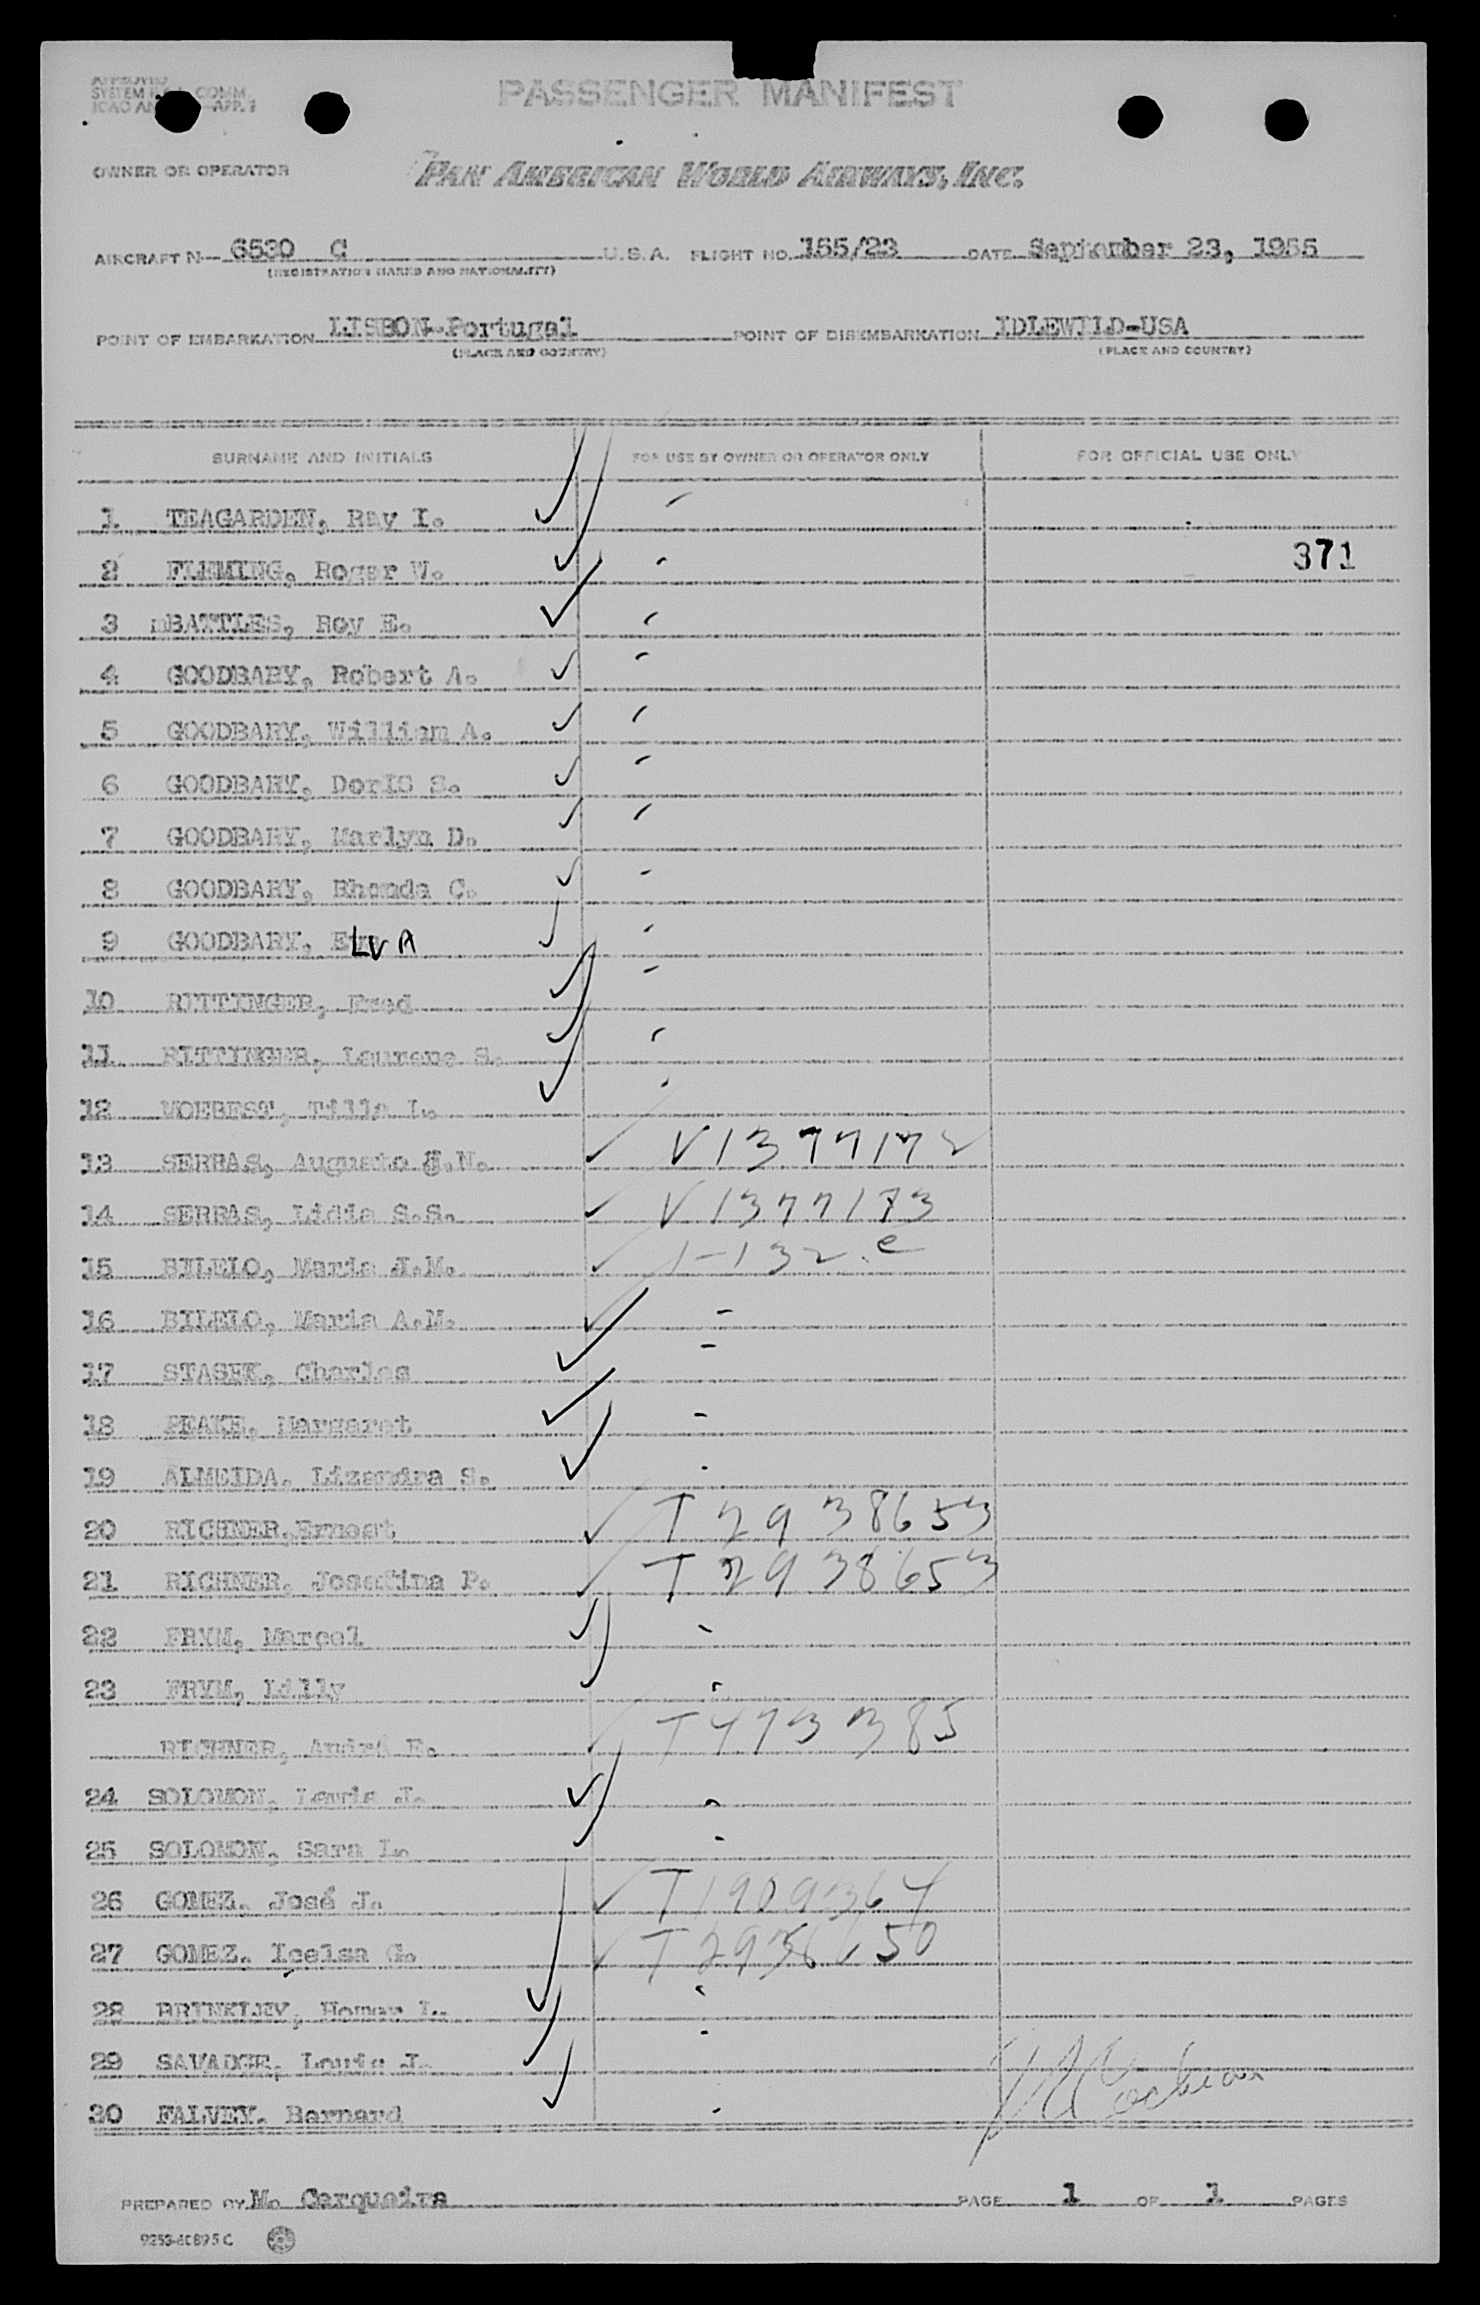 APPROVED
SYSTEM COMM.
ICAO APP. 9
PASSENGER MANIFEST
OWNER OR OPERATOR PAN AMERICAN WORLD AIRWAYS, INC.
AIRCRAFT N 6530 C U.S.A. FLIGHT NO. 155/23 DATE September 23, 1955
(REGISTRATION MARKS AND NATIONALITY)
POINT OF EMBARKATION LISBON-Portugal POINT OF DISEMBARKATION IDLEWILD-USA
(PLACE AND COUNTRY) (PLACE AND COUNTRY)
SURNAME AND INITIALS FOR USE BY OWNER OR OPERATOR ONLY FOR OFFICIAL USE ONLY
1 TEAGARDEN, Ray I.
2 FLEMING, Roger W. 371
3 BATTLES, Roy E.
4 GOODBARY, Robert A.
5 GOODBARY, William A.
6 GOODBARY, DorIS S.
7 GOODBARY, Marlyn D.
8 GOODBARY, Rhonda C.
9 GOODBARY,
10 RITTINGER, Fred
11 RITTINGER, Laurene S.
12 MOEBEST, Tilla L.
13 SERRAS, Augusto J.N. V1377172
14 SERRAS, Lidia S.S. V1377173
15 BILELO, Maria J.M. 1-132 e
16 BILELO, Maria A.M.
17 STASEK, Charles
18 PEAKE, Margaret
19 ALMEIDA, Lizandra S.
20 RICHNER, Ernest T2938653
21 RICHNER, Josefina P. T2938653
22 FRYM, Marcel
23 FRYM, Lilly
RICHNER, André E. T473385
24 SOLOMON, Lewis J.
25 SOLOMON, Sara L.
26 GOMEZ, José J. T1909364
27 GOMEZ, Icelsa G.
28 BRINKLEY, Homer L.
29 SAVADGE, Louis J.
30 FALVEY, Barnard
PREPARED BY M. Cerqueira PAGE 1 OF 1 PAGES
9253-60895 C